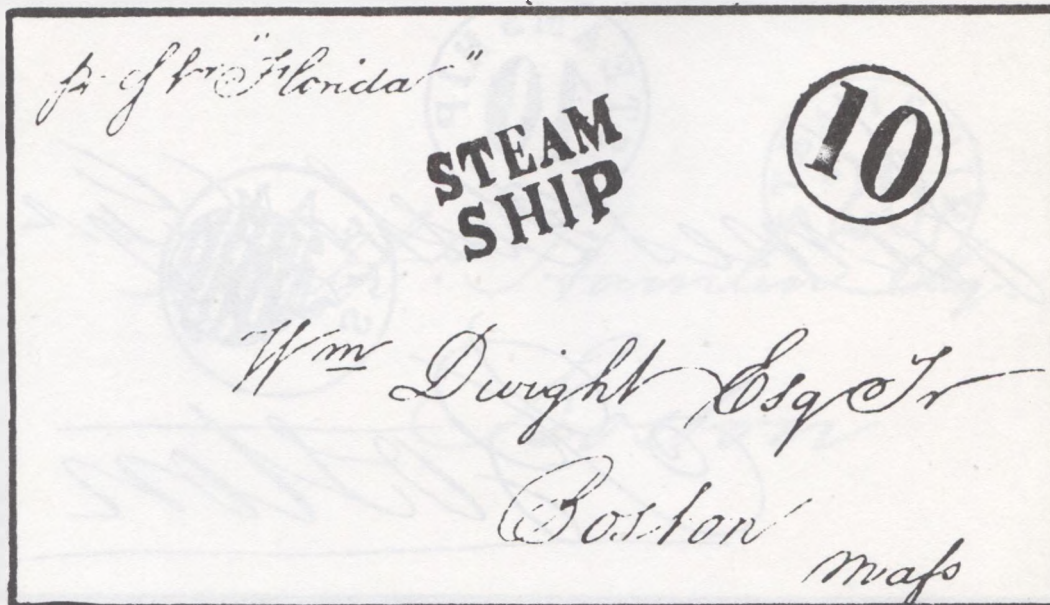 pr Str "Florida"
STEAM
SHIP
10
Wm Dwight Esq Jr
Boston
Mass